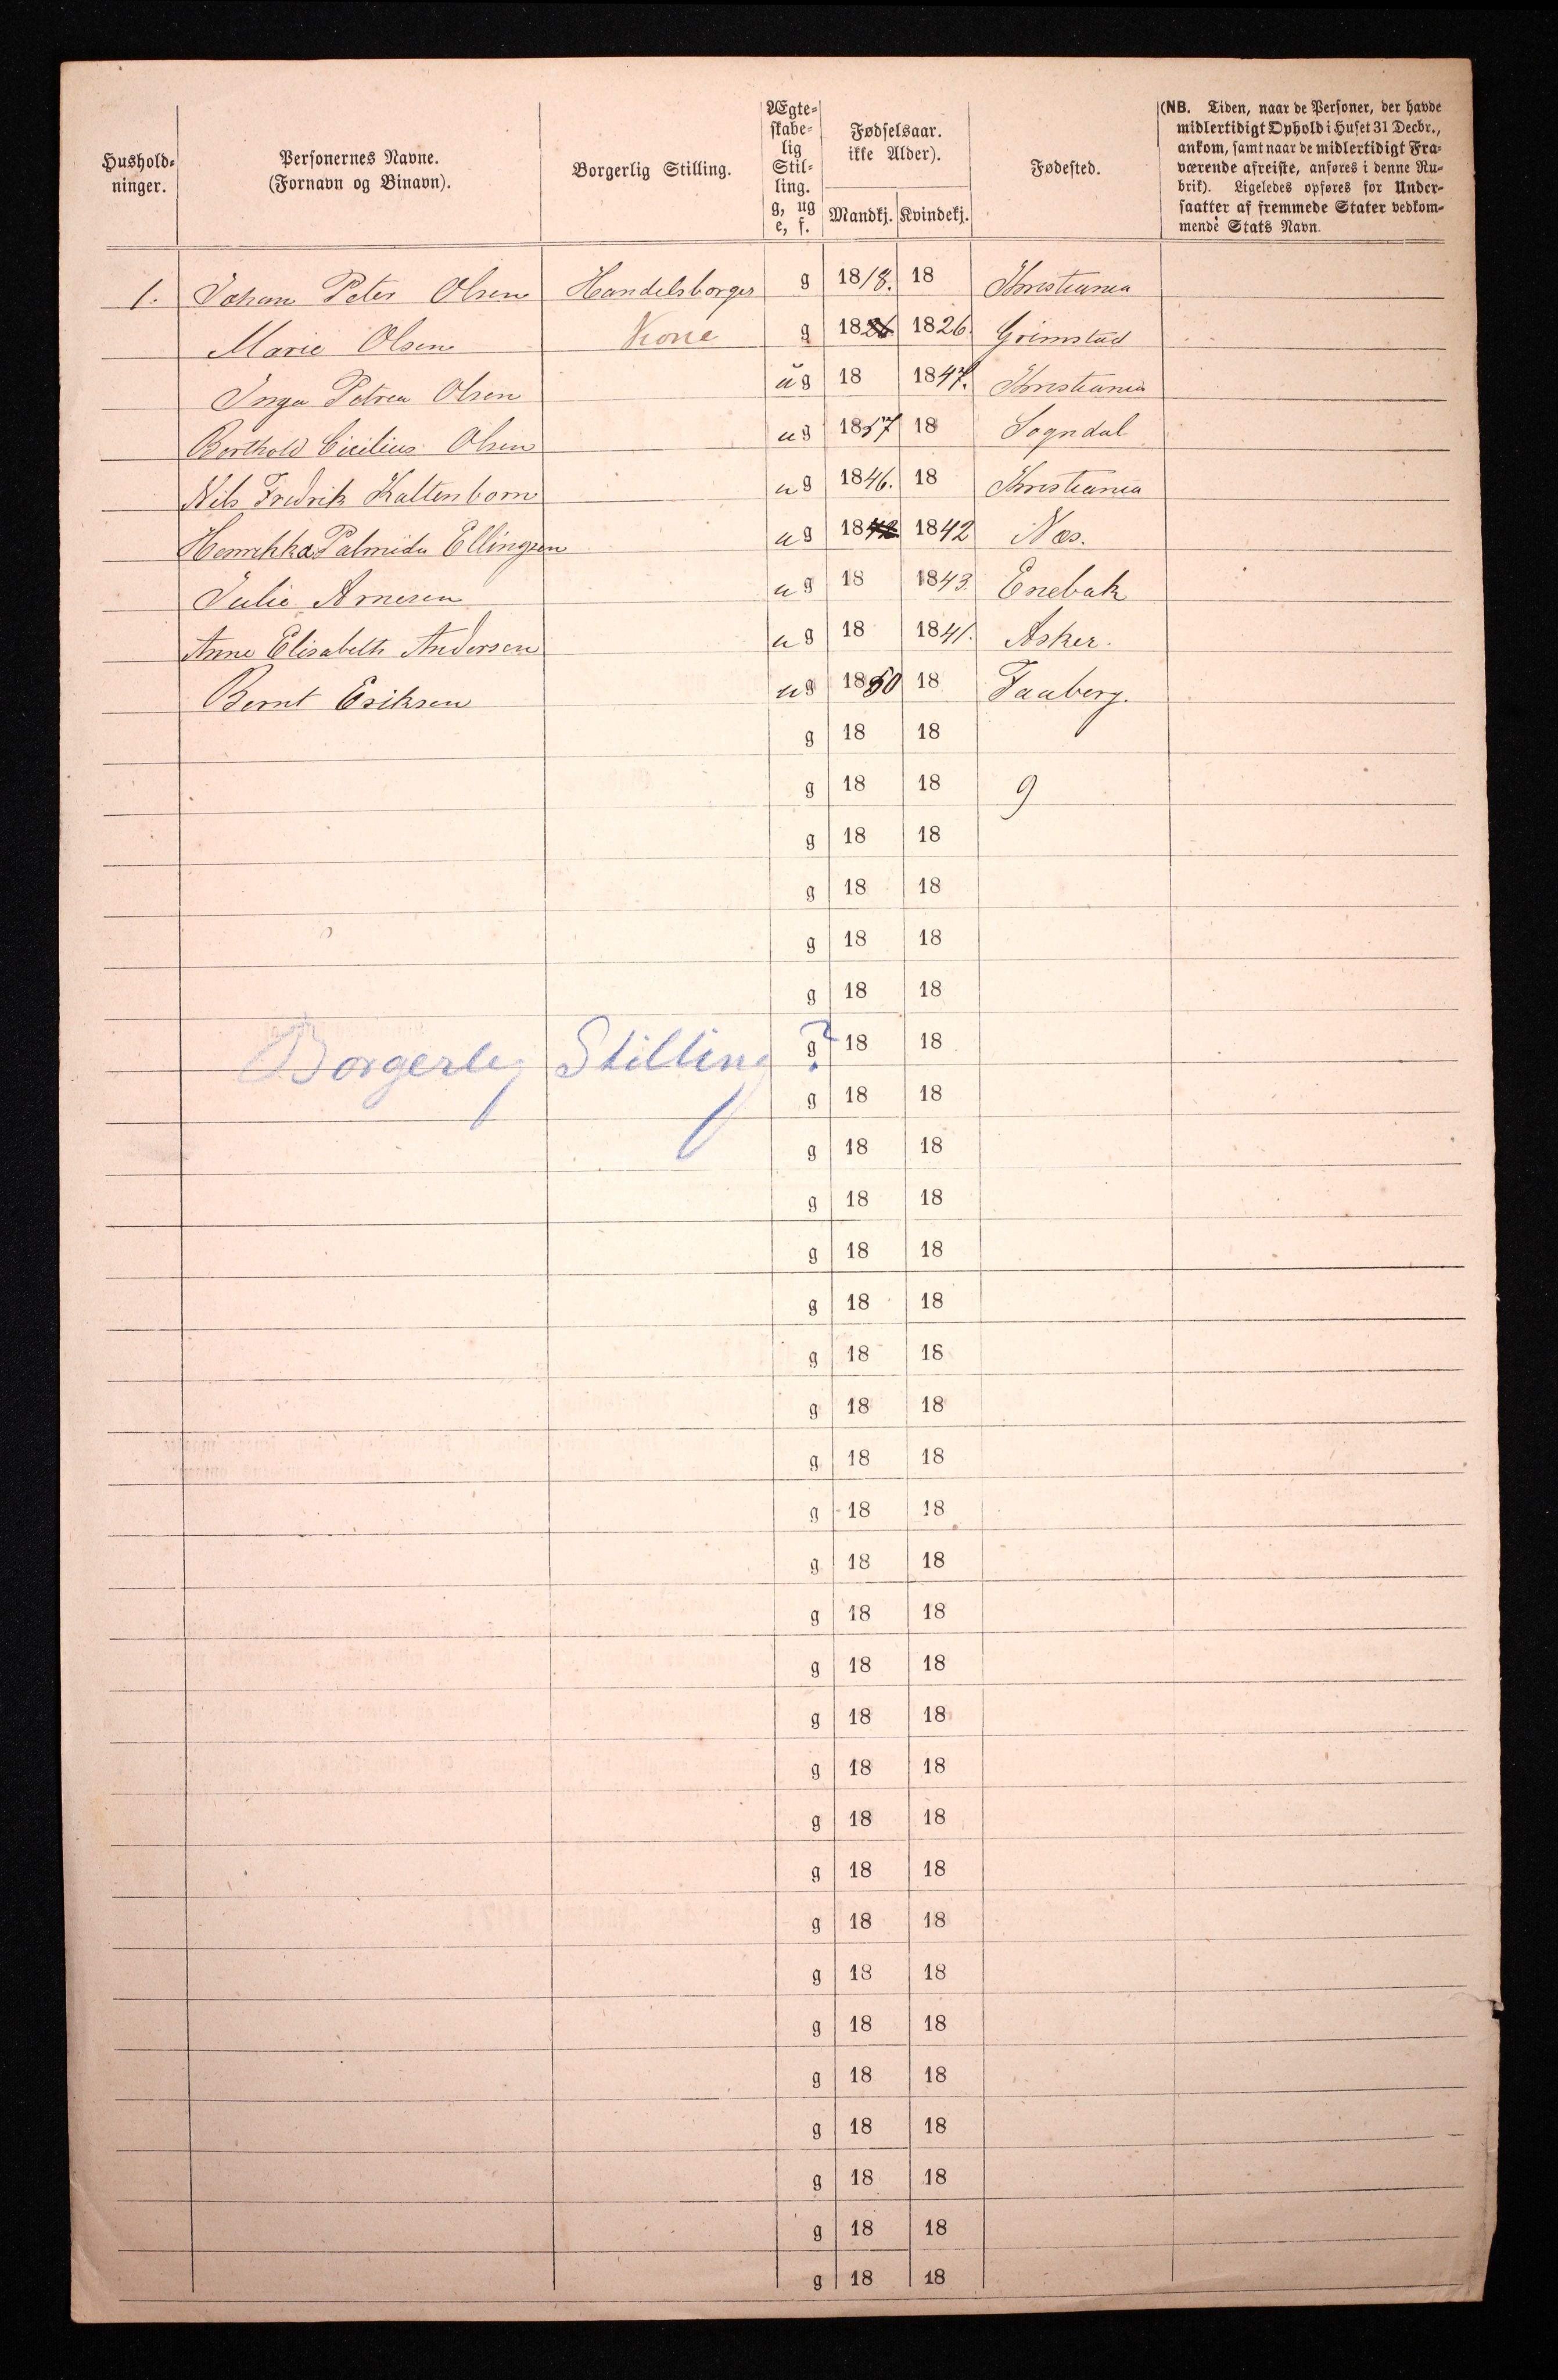 Hushold-
ninger.
Personernes Navne.
(Fornavn og Binavn).
Borgerlig Stilling.
Ægte-
skabe-
lig
Stil-
ling.
g, ug
e, f.
Fødselsaar.
ikke Alder).
Mandkj. Kvindekj.
Fødested.
(NB. Tiden, naar de Personer, der havde
midlertidigt Ophold i Huset 31 Decbr.,
ankom, samt naar de midlertidigt Fra-
værende afreiste, anføres i denne Ru-
brik). Ligeledes opføres for Under-
saatter af fremmede Stater vedkom-
mende Stats Navn.
1. Johan Peter Olsen Handelsborger g 1818. 18 Christiania
Marie Olsen Kone g 1826 1826. Grimstad
Inga Petrea Olsen ug 18 1847. Christiania
Berthold Cicilius Olsen ug 1857 18 Sogndal
Nils Fredrik Kaltenborn ug 1846. 18 Christiania
Henrikka Palmida Ellingsen ug 1842 1842 Næs.
Julie Arnesen ug 18 1843. Enebak
Anne Elisabeth Andersen ug 18 1841. Asker.
Bernt Eriksen ug 1850 18 Faaberg.
g 18 18
g 18 18 9
g 18 18
g 18 18
g 18 18
g 18 18
Borgerlig Stilling ? g 18 18
g 18 18
g 18 18
g 18 18
g 18 18
g 18 18
g 18 18
g 18 18
g 18 18
g 18 18
g 18 18
g 18 18
g 18 18
g 18 18
g 18 18
g 18 18
g 18 18
g 18 18
g 18 18
g 18 18
g 18 18
g 18 18
g 18 18
g 18 18
g 18 18